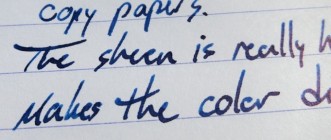 copy papers.
The sheen is really
Makes the color